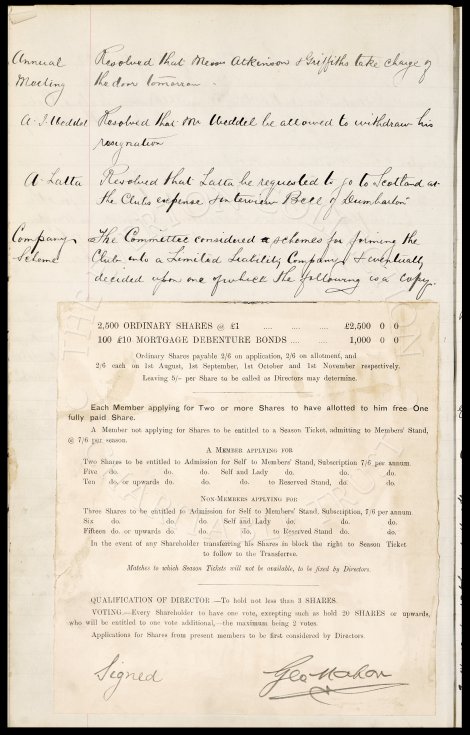 Annual Meeting
Resolved that Messrs Atkinson & Griffiths take charge of
the door tomorrow.
A. I. Weddel
Resolved that Mr Weddel be allowed to withdraw his
resignation
A Latta
Resolved that Latta be requested to go to Scotland at
the Clubs expense & interview Bell of Dumbarton
Company Scheme
The Committee considered schemes for forming the
Club into a Limited Liability Company & eventually
decided upon one of which the following is a copy.
2,500 ORDINARY SHARES @ £1 .... .... .... £2,500 0 0
100 £10 MORTGAGE DEBENTURE BONDS .... .... 1,000 0 0
Ordinary Shares payable 2/6 on application, 2/6 on allotment, and
2/6 each on 1st August, 1st September, 1st October and 1st November respectively.
Leaving 5/- per Share to be called as Directors may determine.
Each Member applying for Two or more Shares to have allotted to him free One
fully paid Share.
A Member not applying for Shares to be entitled to a Season Ticket, admitting to Members' Stand,
@ 7/6 per season.
A MEMBER APPLYING FOR
Two Shares to be entitled to Admission for Self to Members' Stand, Subscription 7/6 per annum.
Five do. do. do. Self and Lady do. do. do.
Ten do. or upwards do. do. do. to Reserved Stand, do. do.
NON-MEMBERS APPLYING FOR
Three Shares to be entitled to Admission for Self to Members' Stand, Subscription, 7/6 per annum
Six do. do. do. Self and Lady do. do. do.
Fifteen do. or upwards do. do. do. to Reserved Stand do. do.
In the event of any Shareholder transferring his Shares in block the right to Season Ticket
to follow to the Transferree.
Matches to which Season Tickets will not be available, to be fixed by Directors.
QUALIFICATION OF DIRECTOR.—To hold not less than 3 SHARES.
VOTING.—Every Shareholder to have one vote, excepting such as hold 20 SHARES or upwards,
who will be entitled to one vote additional,—the maximum being 2 votes.
Applications for Shares from present members to be first considered by Directors.
Signed
Geo Mahon